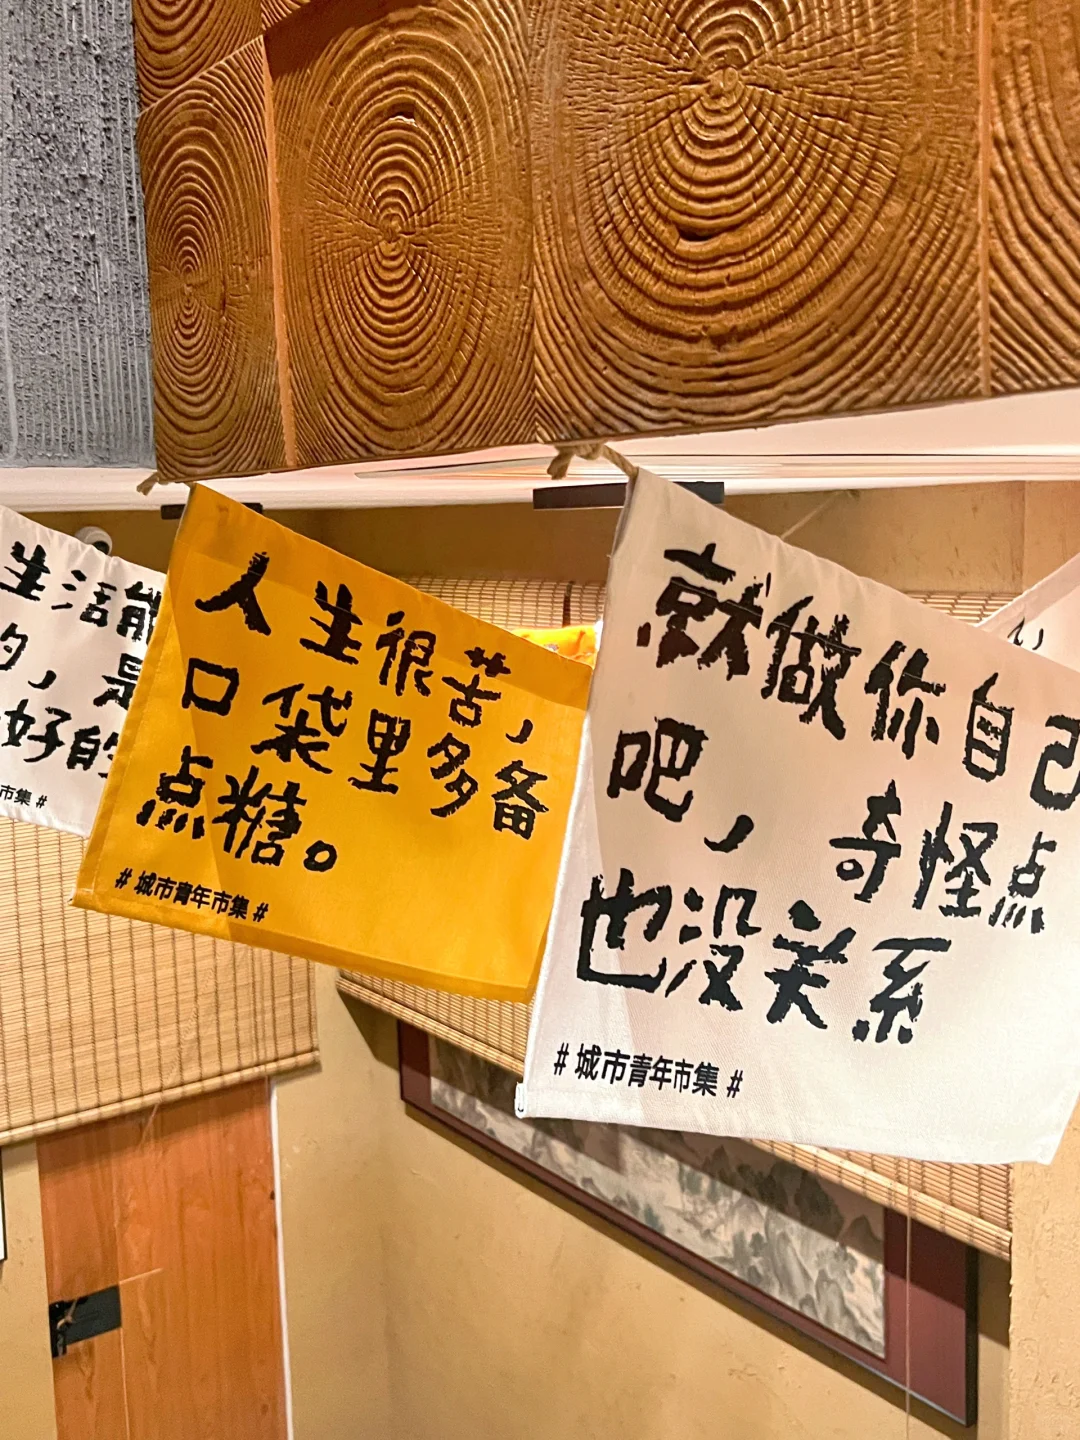 生活
的，是
好的
市集 #
人生很苦，
口袋里多备
点糖。
# 城市青年市集 #
就做你自己
吧，奇怪点
也没关系
# 城市青年市集 #